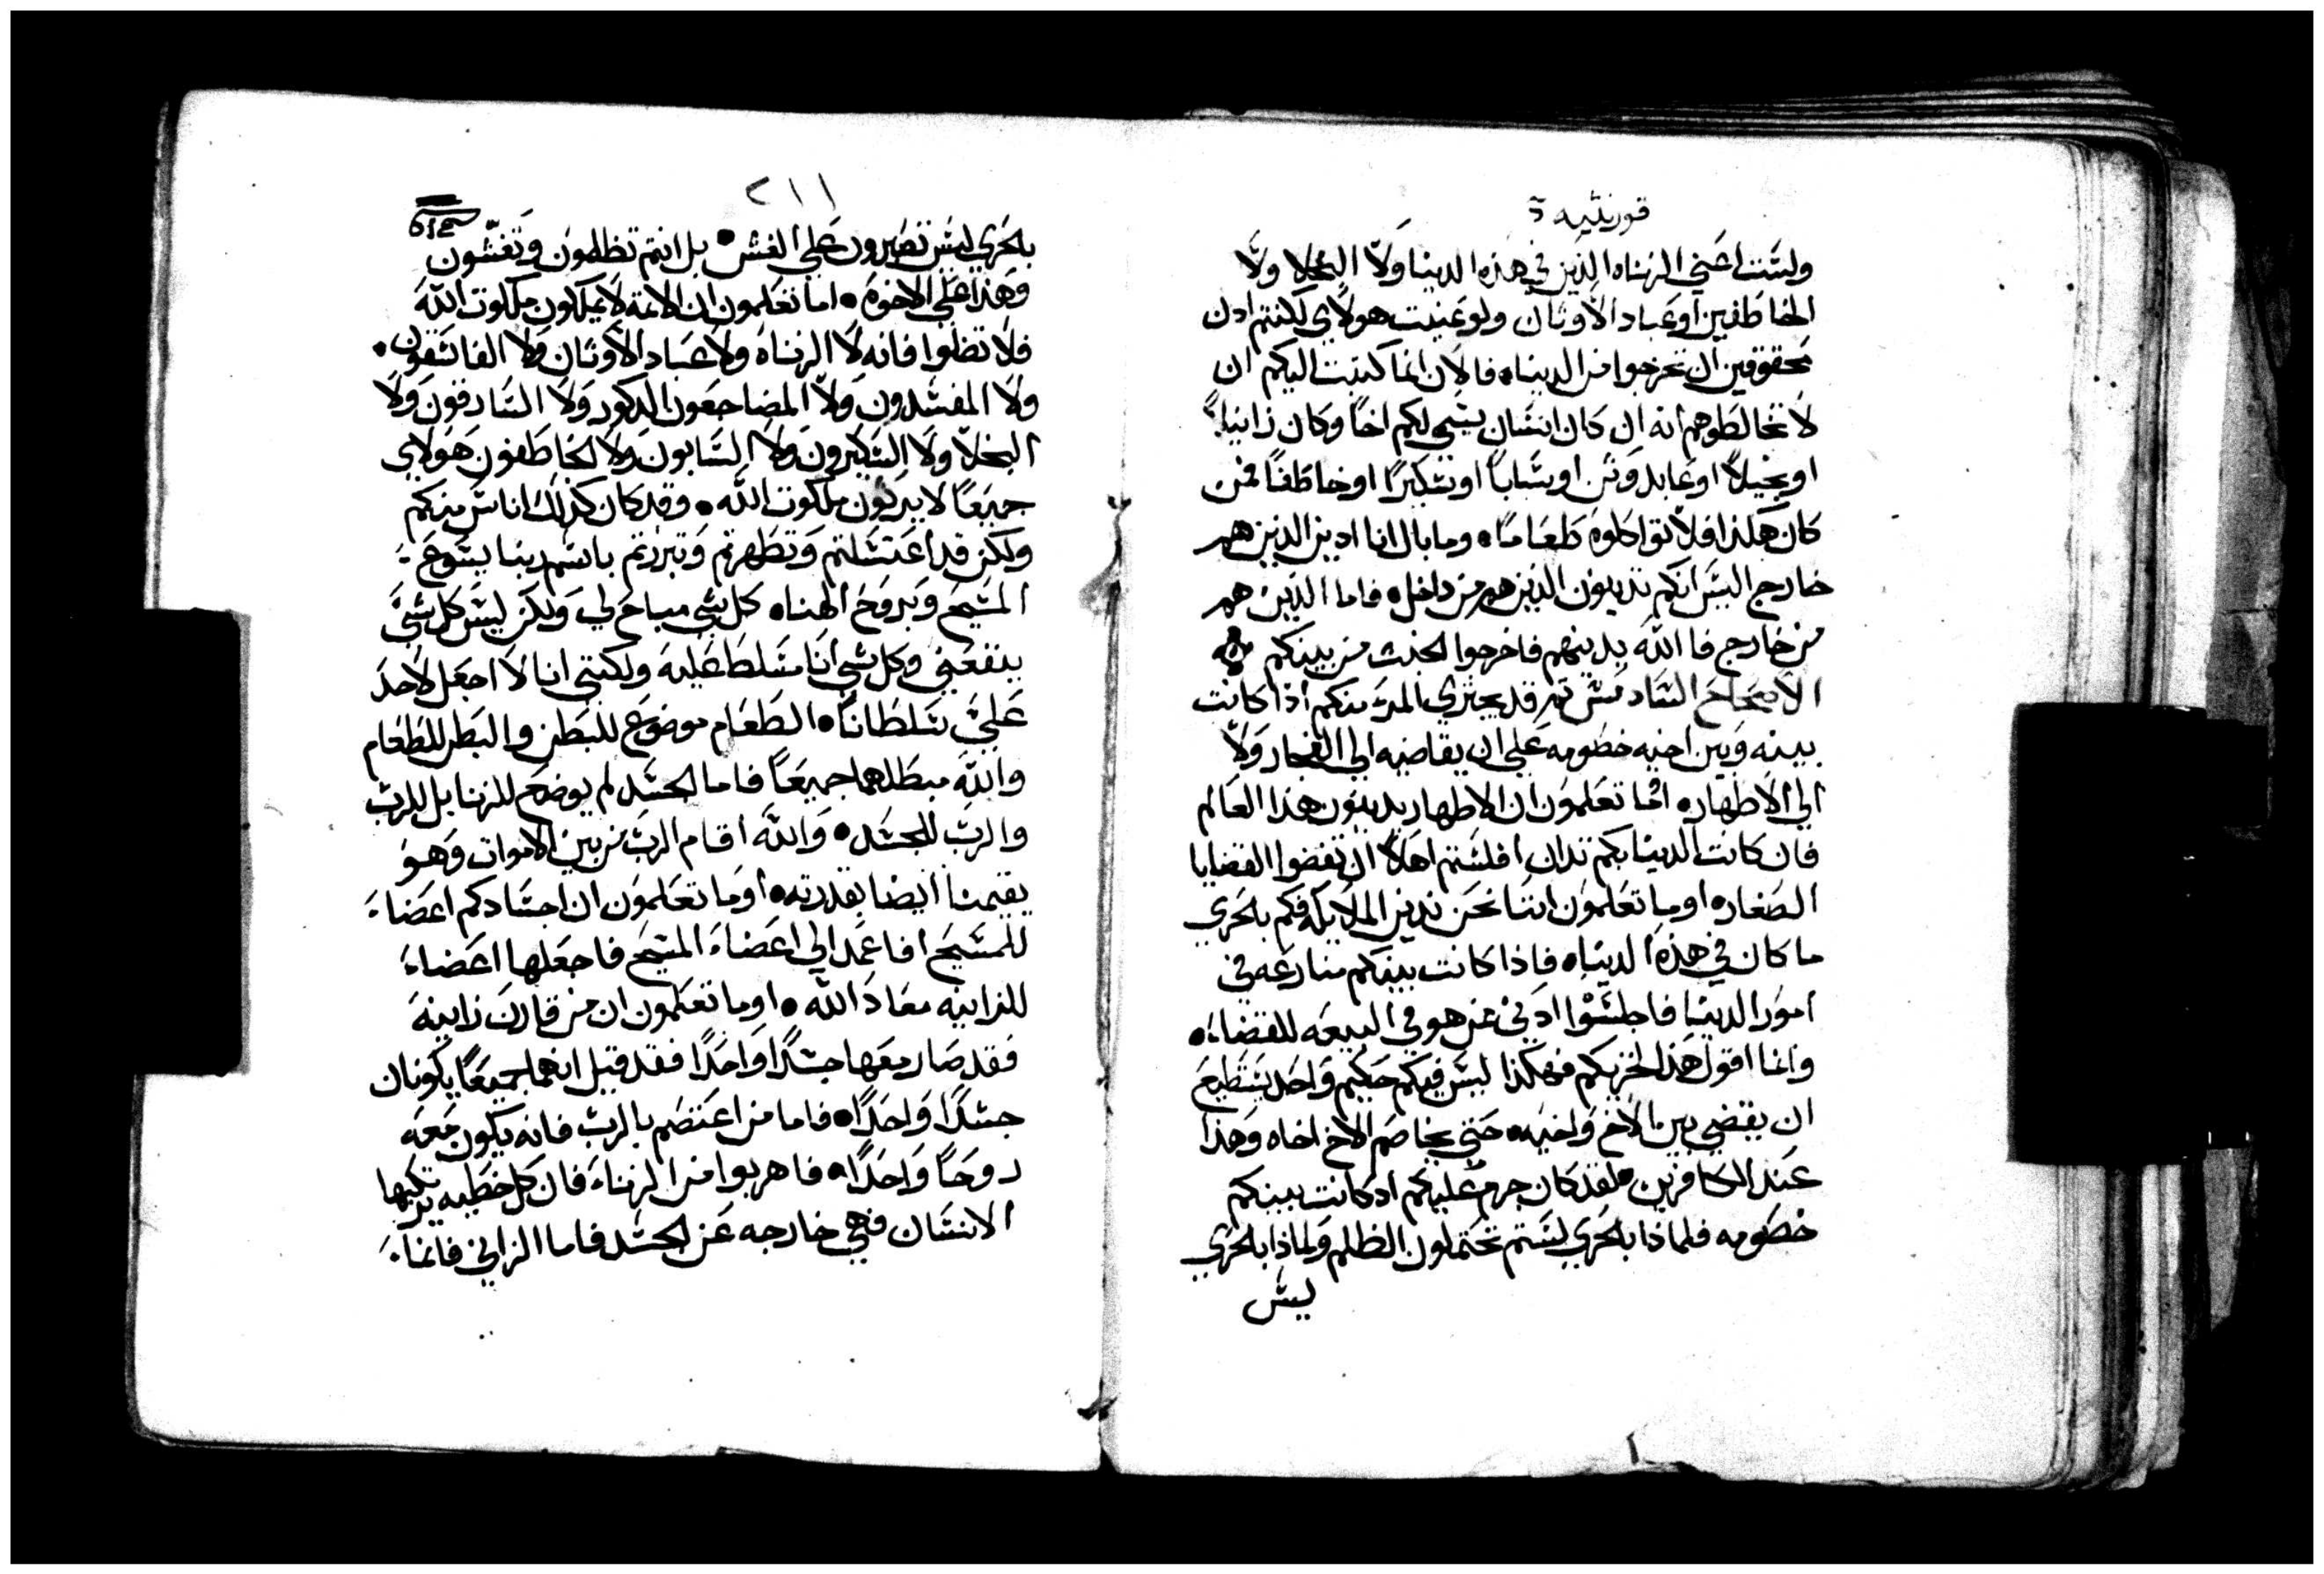 قورنثيه
ولست اعني الزناه الذين في هذه الدينا ولا البخلا ولا
الخاطفين او عباد الاوثان ولو عنيت هولاي لكنتم ادن
محقوقين ان تخرجوا من الدينا فالان انما كتبت اليكم ان
لا تخالطوهم انه ان كان انسان يسمي لكم اخا وكان زانيا
او بخيلا او عابد وثن او سبابا او سكيرا او خاطفا فمن
كان هكذا فلا تواكلوه طعاما وما بال انا ادين الذين هم
خارج اليس انكم تدينون الذين هم من داخل فاما الذين هم
من خارج فا الله يدينهم فاخرجوا الخبث من بينكم
الاصحاح السادس قد يجتري المر منكم اذا كانت
بينه وبين اخيه خصومه علي ان يقاضيه الي الفجار ولا
الي الاطهار اما تعلمون ان الاطهار يدينون هذا العالم
فان كانت الدينا بكم تدان افلستم اهلا ان تقضوا القضايا
الصغار او ما تعلمون اننا نحن ندين الملايكه فكم بلحري
ما كان في هذه الدينا فاذا كانت بينكم منازعه في
امور الدينا فاجلسوا ادني من هو في البيعه للقضاء
وانما اقول هذا لخزيكم فهكذا ليس فيكم حكيم واحد يستطيع
ان يقضي بين الاخ واخيه حتي يخاصم الاخ اخاه وهذا
عند الكافرين فلقد كان جرم عليكم اد كانت بينكم
خصومه فلماذا بلحري لستم تحتملون الظلم ولماذا بلحري
ليس
٢١١
بلحري ليس تصبرون علي الغش بل انتم تظلمون وتغشون
وهذا علي الاخوه اما تعلمون ان الاثمة لا يملكون ملكوت الله
فلا تظلوا فانه لا الزناه ولا عباد الاوثان ولا الفاسقون
ولا المفسدون ولا المضاجعون الدكور ولا السارقون ولا
البخلا ولا السكيرون ولا السابون ولا الخاطفون هولاي
جميعا لا يدركون ملكوت الله وقد كان كذلك اناس منكم
ولكن قد اغتسلتم وتطهرتم وتبررتم باسم ربنا يسوع
المسيح وبروح الهنا كل شي مباح لي ولكن ليس كل شي
ينفعني وكل شي انا مسلط عليه ولكنني انا لا اجعل لاحد
علي سلطانا الطعام موضوع للبطن والبطن للطعام
والله مبطلهما جميعا فاما الجسد لم يوضع للزنا بل للرب
والرب للجسد والله اقام الرب من بين الاموات وهو
يقيمنا ايضا بقدرته او ما تعلمون ان اجسادكم اعضاء
للمسيح افاعمد الي اعضاء المسيح فاجعلها اعضاء
للزانيه معاد الله او ما تعلمون ان من قارن زانية
فقد صار معها جسدا واحدا فقد قيل انهما جميعا يكونان
جسدا واحدا فاما من اعتصم بالرب فانه يكون معه
روحا واحدا فاهربوا من الزناء فان كل خطيه يرتكبها
الانسان فهي خارجه عن الجسد فاما الزاني فانما